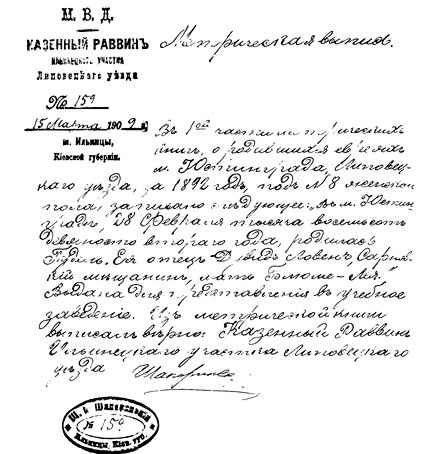 М. В. Д.
КАЗЕННЫЙ РАВВИНЪ
ИЛЬИНЕЦКАГО УЧАСТКА
Липовецкаго уѣзда
Метрическая выпись.
№ 159
15 Марта 1909 г.
м. Ильинцы,
Кіевской губерніи.
Въ 1ой части метрическихъ
книг, о родившихся евреяхъ
м. Юстинграда, Липовец-
каго уѣзда, за 1892 годъ, подъ № 8 женскаго
пола, записано слѣдующее: въ м. Юстин-
градѣ, 28 Февраля тысяча восемьсотъ
девяносто второго года, родилась
Ея отецъ Давидъ
мѣщанинъ, мать
Выдана для представленія въ учебное
заведеніе. Изъ метрической книги
выписалъ вѣрно: Казенный Раввинъ
Ильинецкаго участка Липовецкаго
уѣзда
№ 159
Ильинцы, Кіев. губ.